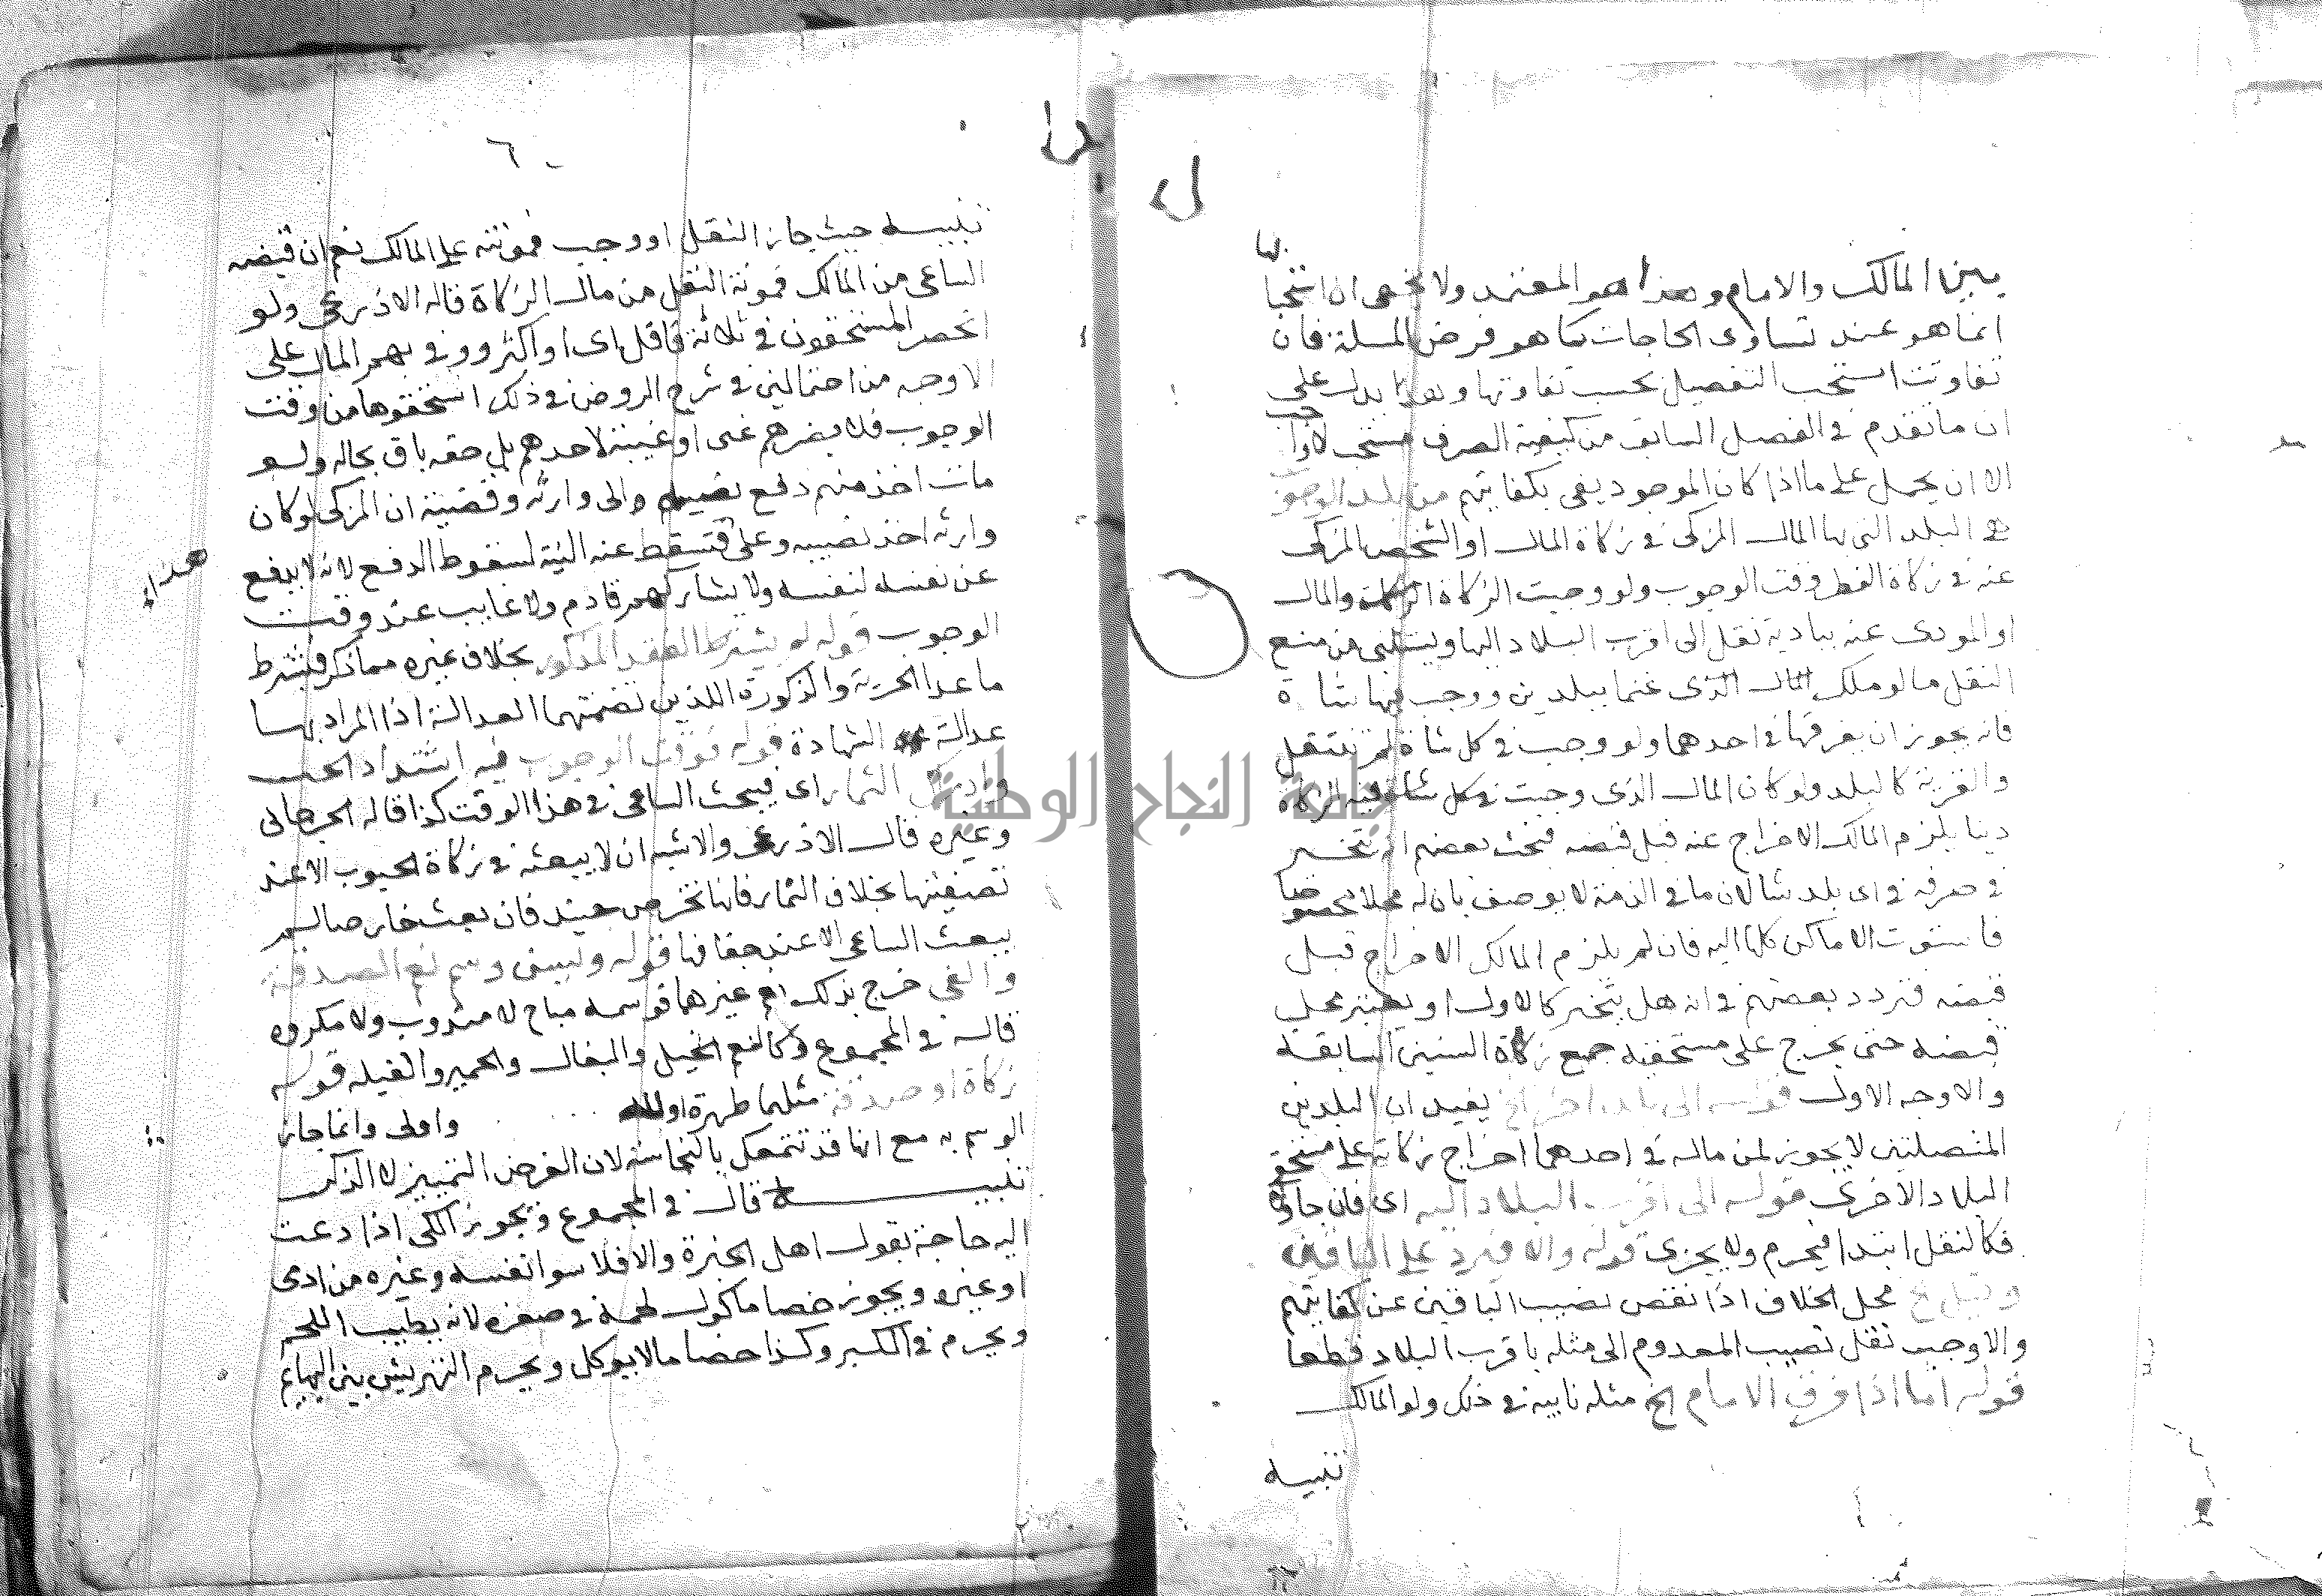 بين المالك والامام وهذا هو المعتمد ولا يخفى ان استحبابها
انما هو عند تساوى الحاجات كما هو فرض المسلة فان
تفاوتت استحب التفضيل بحسب تفاوتها وهذا يدل على
ان ما تقدم فى الفصل السابق من كيفية الصرف مستحب لا واجب
الا ان يحمل على ما اذا كان الموجود يفى بكفايتهم من بلد الوجوب
هى البلد التى بها المال المزكى فى زكاة المال او الشخص المزكى
عنه فى زكاة الفطر وقت الوجوب ولو وجبت الزكاة والمال
او المودى عنه ببادية نقل الى اقرب البلاد اليها ويستثنى من منع
النقل ما لو ملك المال الذى غنما ببلدين ووجب فيها شاة
فانه يجوز ان يفرقها فى احدهما ولو وجب فى كل شاة لم تنتقل
والقرية كالبلد ولو كان المال الذى وجبت فيه الزكاة
دينا يلزم المالك الاخراج عنه قبل قبضه فبحث بعضهم انه يتخير
فى صرفه فى اى بلد شا لان ما فى الذمة لا يوصف بان له محلا مخصوصا
فاستوت الاماكن كلها اليه فان لم يلزم المالك الاخراج قبل
قبضه فتردد بعضهم فى انه هل يتخير كالاول او يعتبر محل
قبضه حتى يخرج على مستحقيه جميع زكاة السنين السابقة
والاوجه الاول قوله الى بلد اخر الخ يفيد ان البلدين
المتصلتين لا يجوز لمن ماله فى احدهما اخراج زكاته على مستحق
البلاد الاخرى قوله الى اقرب البلاد اليه اى فان جاوزه
فكالنقل ابتدا فيحرم ولا يجزى قوله والا فيرد على الباقين
وقيل الخ محل الخلاف اذا نقص نصيب الباقين عن كفايتهم
والا وجب نقل نصيب المعدوم الى مثله باقرب البلاد قطعا
قوله اما اذا فرق الامام الخ مثله نايبه فى ذلك ولو المالك
تنبيه
٦٠
تنبيه حيث جاز النقل او وجب فمونته على المالك نعم ان قبضه
الساعى من المالك فمونة النقل من مال الزكاة قاله الاذرعى ولو
انحصر المستحقون فى ثلاثة فاقل اى او اكثر ووفى بهم المال على
الاوجه من احتمالين فى شرح الروض فى ذلك استحقوها من وقت
الوجوب فلا يضرهم غنى او غيبة لاحدهم بل حقه باق بحاله ولو
مات احد منهم دفع نصيبه الى وارثه وقضيته ان المزكى لو كان
وارثه اخذ نصيبه وعلى فتسقط عنه النية لسقوط الدفع لانه لا يدفع
عن نفسه لنفسه ولا يشاركهم قادم ولا غايب عند وقت
الوجوب قوله لم يشترط الفقد المذكور بخلاف غيره مما ذكر فيشترط
ما عدا الحرية والذكورة اللذين تضمنتهما العدالة اذا المراد بها
عدالة الشهادة قوله فوقت الوجوب فيه اشتداد الحب
وادراك الثمار اى فيبعث الساعى فى هذا الوقت كذا قاله الجرجانى
وغيره قال الاذرعى والاشبه ان لا يبعثه فى زكاة الحبوب الا عند
تصفيتها بخلاف الثمار فانها تخرص حينيد فان بعث خارصا لم
يبعث الساعى الا عند جفافها قوله وليسن وسم نعم الصدقة
والفى خرج بذلك نعم غيرهما فوسمه مباح لا مندوب ولا مكروه
قاله فى المجموع وكالنعم الخيل والبغال والحمير والفيلة قوله
زكاة او صدقة مثلهما طهرة او لله واولى وانما جاز
الوسم به مع انها قد تتمعك بالنجاسة لان الغرض التمييز لا الذكر
تنبيه قال فى المجموع ويجوز الكى اذا دعت
اليه حاجة بقول اهل الخبرة والا فلا سوا نفسه وغيره من ادمى
او غيره ويجوز خصا ماكول لحمه فى صغره لانه يطيب اللحم
ويحرم فى الكبير وكذا خصا ما لا يوكل ويحرم التهريش بين البهايم
جامعة النجاح الوطنية